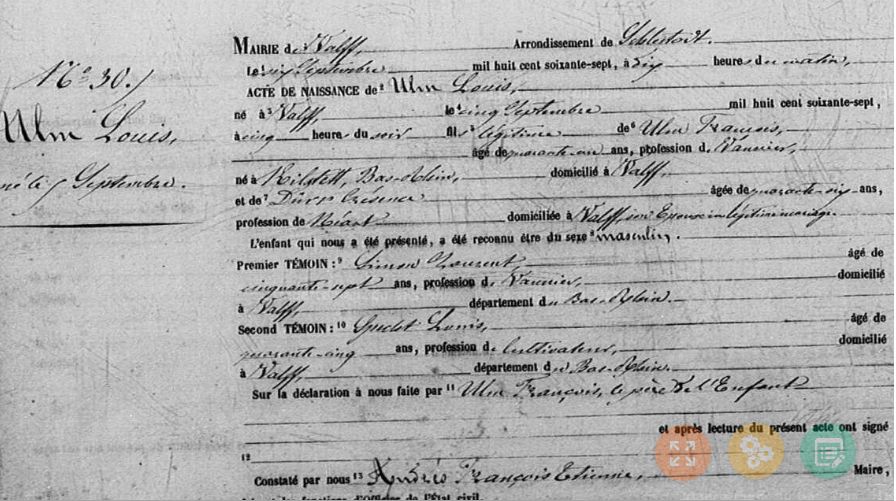 MAIRIE de Valff, Arrondissement de Schlestadt.
N° 30.
Le 1 six Septembre mil huit cent soixante-sept, à dix heures du matin,
ACTE DE NAISSANCE de 2 Ulm Louis,
né à 3 Valff, le 4 cinq Septembre mil huit cent soixante-sept,
Ulm Louis,
à cinq heures du soir fils 5 légitime de 6 Ulm François,
âgé de quarante-un ans, profession de Vannier,
né à Kilstett, Bas-Rhin, domicilié à Valff,
né le 5 Septembre.
et de 7 Dürr Crésence âgée de quarante-six ans,
profession de Néant domiciliée à Valff, son Epouse en légitime mariage.
L'enfant qui nous a été présenté, a été reconnu être du sexe 8 masculin.
Premier TÉMOIN : 9 Simon Laurent, âgé de
cinquante-sept ans, profession de Vannier, domicilié
à Valff, département du Bas-Rhin.
Second TÉMOIN : 10 Louis, âgé de
quarante-cinq ans, profession de Cultivateur, domicilié
à Valff, département du Bas-Rhin.
Sur la déclaration à nous faite par 11 Ulm François, le père de l'Enfant
et après lecture du présent acte ont signé
12
Constaté par nous 13 Andrés François Etienne, Maire,
fonctions d'Officier de l'État civil.